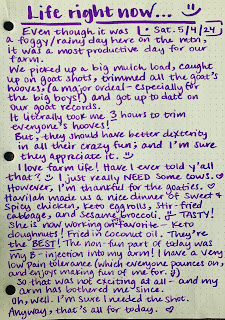 Life right now... :)
Even though it was • Sat. 5/4/24
a foggy/rainy day here on the mtn,
it was a most productive day for our
farm.
We picked up a big mulch load, caught
up on goat shots, trimmed all the goat's
hooves, (a major ordeal - especially for
the big boys!) and got up to date on
our goat records.
It literally took me 3 hours to trim
everyone's hooves!
But, they should have better dexterity
in all their crazy fun; and I'm sure
they appreciate it. :)
I love farm life! Have I ever told y'all
that? :) I just really NEED some cows. ♡
However, I'm thankful for the goaties. ♡
Havilah made us a nice dinner of Sweet &
Spicy chicken, keto eggrolls, stir-fried
cabbage, and sesame broccoli. :) TASTY!
She is now working on my favorite - keto
doughnuts! Fried in coconut oil. They're
the BEST! The non-fun part of today was
my B- injection into my arm! I have a very
low pain tolerance (which everyone pounces on,
and enjoys making fun of me for. ;))
So that was not exciting at all - and my
arm has bothered me since.
Oh, well. I'm sure I needed the shot.
Anyway, that's all for today. ♡